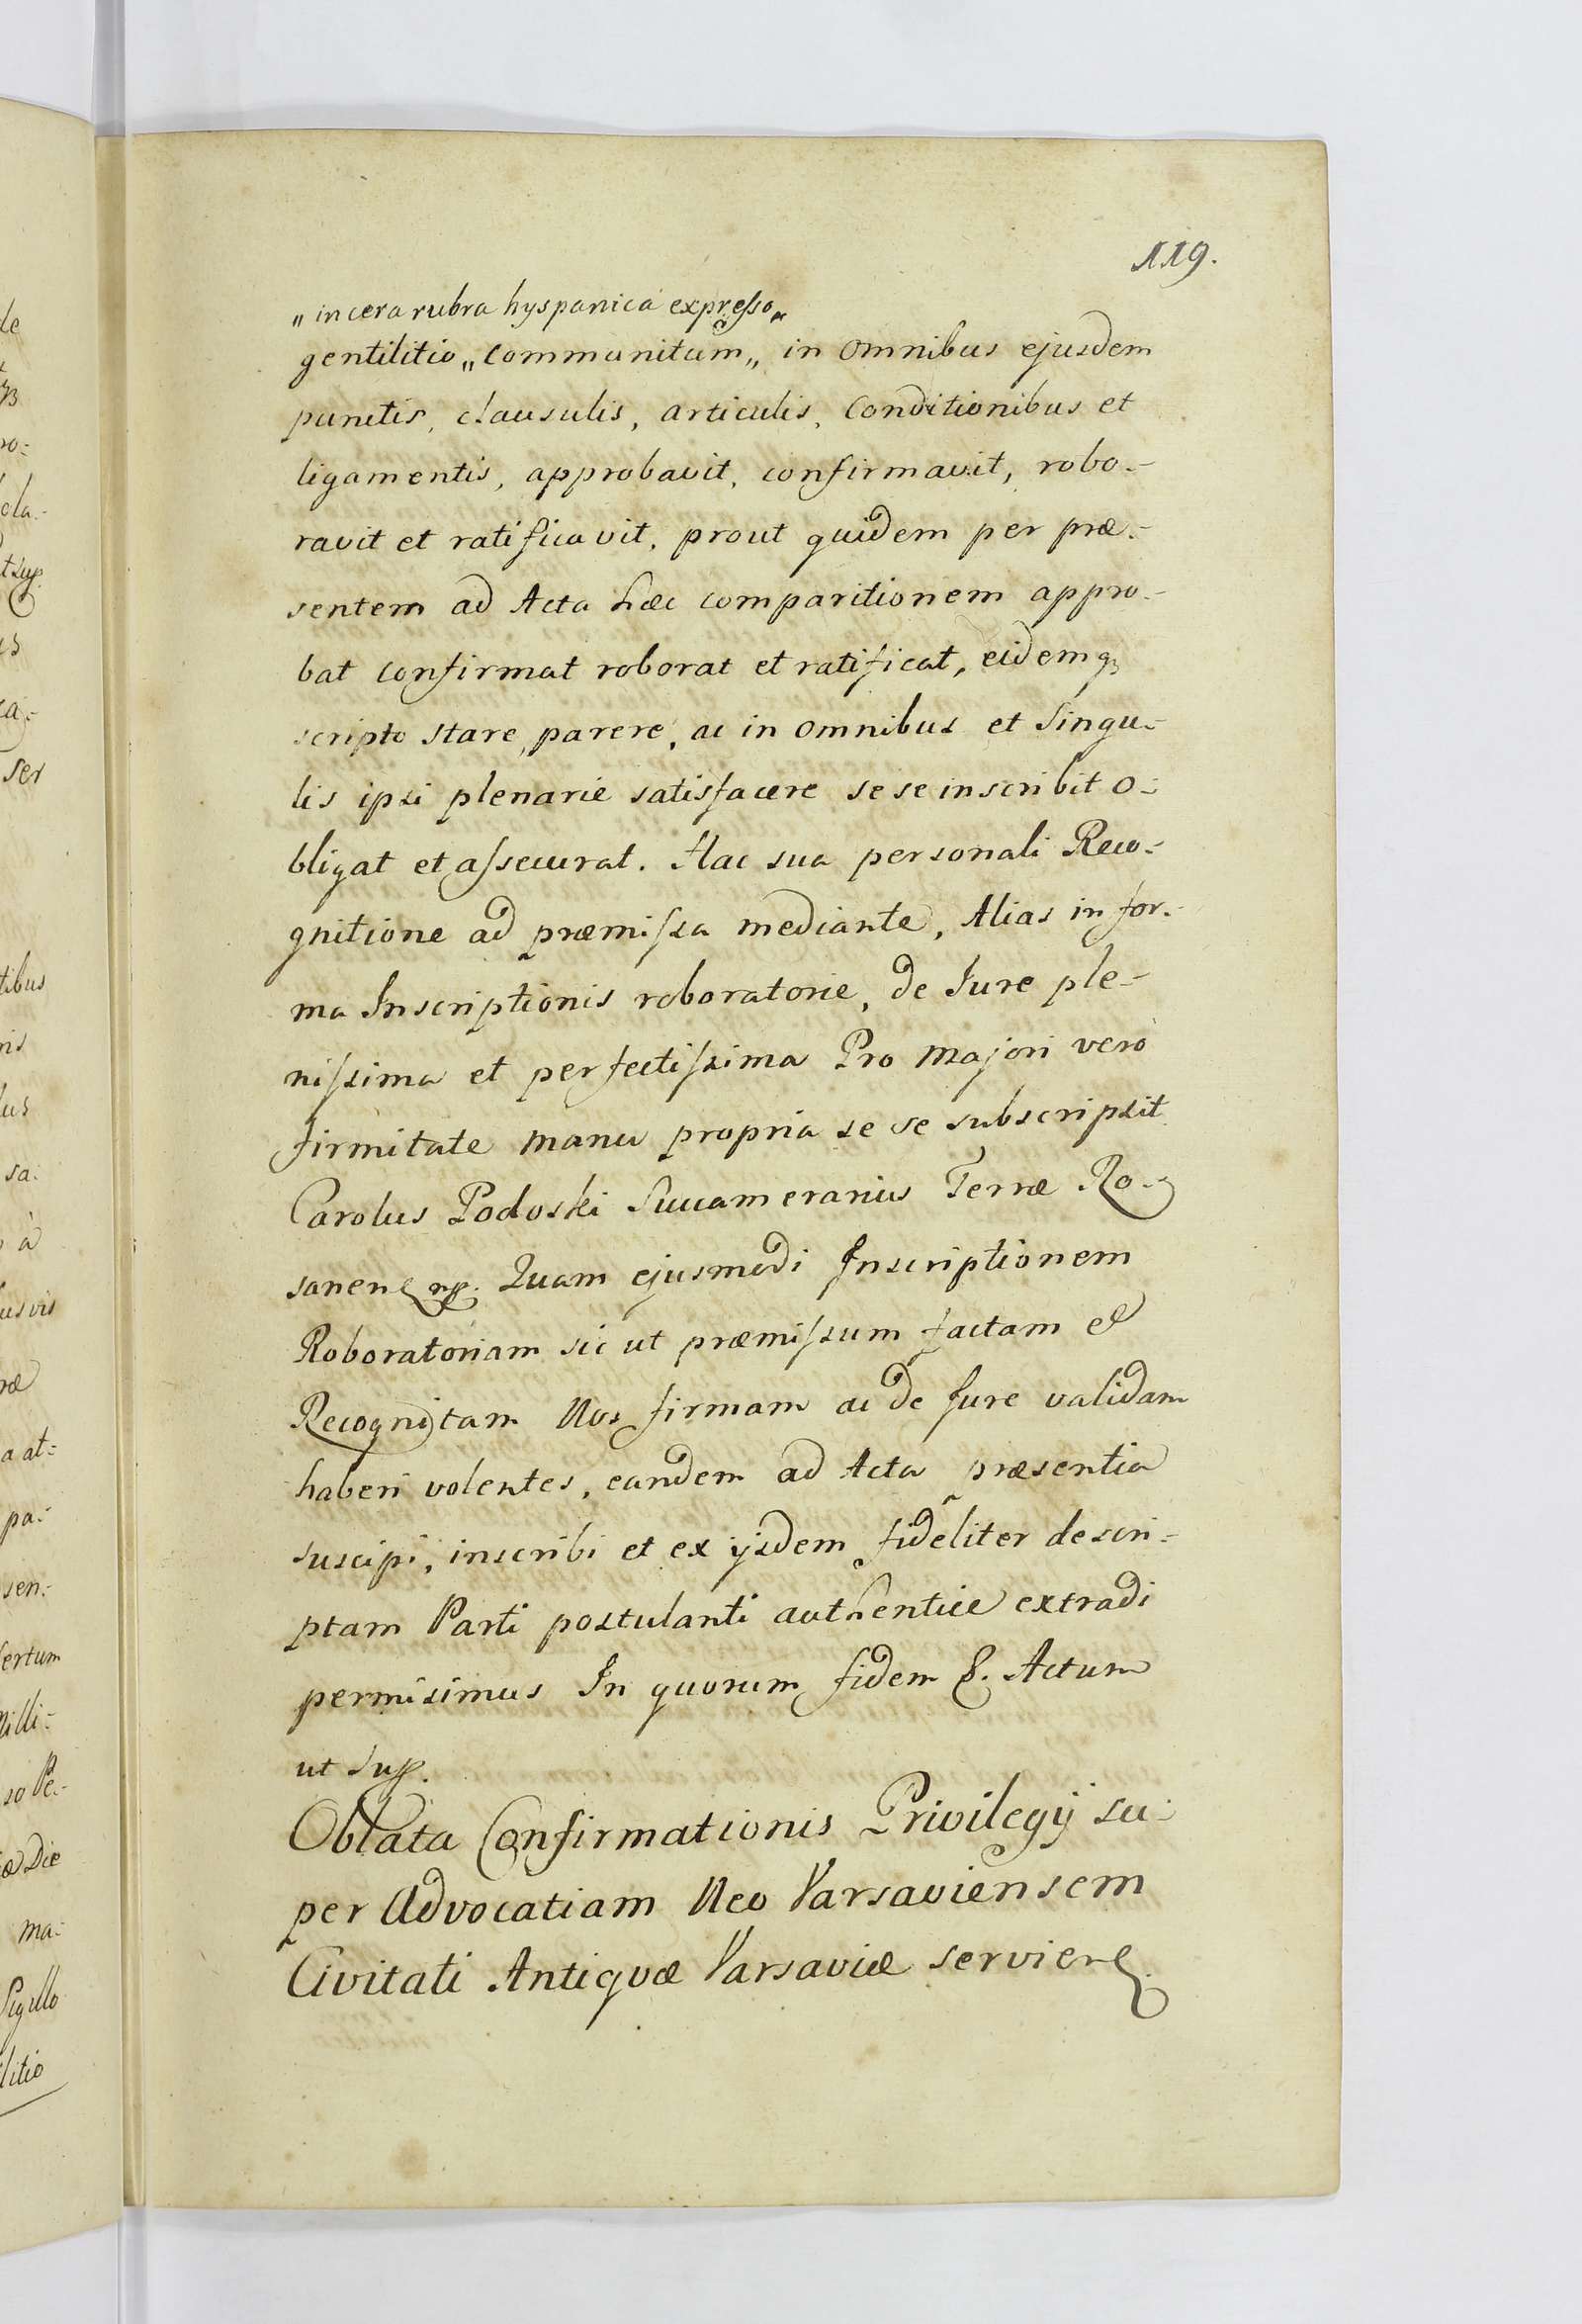 119.
„ in cera rubra hyspanica expresso „
gentilitio „ communitum „ in omnibus ejusdem
punctis, clausulis, articulis, Conditionibus et
ligamentis, approbavit, confirmavit, robo-
ravit et ratificavit, prout quidem per præ-
sentem ad Acta hæc comparitionem appro-
bat confirmat roborat et ratificat, eidemq3
scripto stare, parere, ac in omnibus et Singu-
lis ipsi plenarie satisfacere se se inscribit o-
bligat et assecurat. Hac sua personali Reco-
gnitione ad præmissa mediante, Alias in for-
ma Inscriptionis roboratorie, de Jure ple-
nissima et perfectissima Pro majori vero
firmitate manu propria se se subscripsit
Carolus Podoski Succamerarius Terræ Ro-
sanen mp. Quam ejusmodi Inscriptionem
Roboratoriam sic ut præmissum factam et
Recognitam Nos firmam ac de Jure validam
haberi volentes, eandem ad Acta præsentia
suscipi, inscribi et ex ijsdem fideliter descri-
ptam Parti postulanti authentice extradi
permisimus In quorum fidem &. Actum
ut Sup.
Oblata Confirmationis Privilegij su-
per Advocatiam Neo Varsaviensem
Civitati Antiquæ Varsaviæ servien
de
ser
tibus
nis
sa.
à
usvis
a at-
pa-
sen-
sertum
milli-
so Pe-
Die
ma-
Sigillo
litio